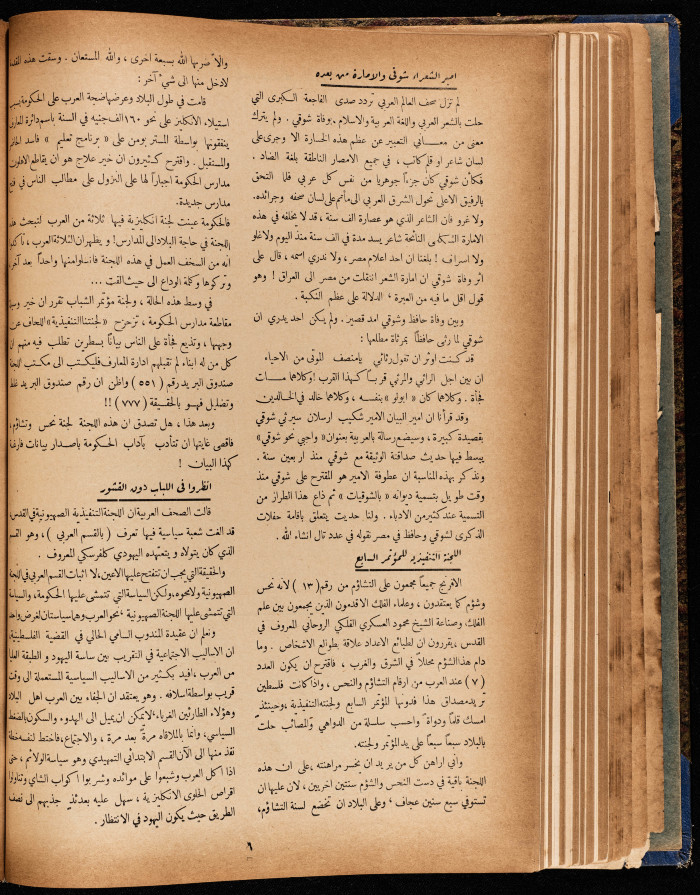 امير الشعراء شوقى والامارة من بعده
لم تزل صحف العالم العربي تردد صدى الفاجعة الكبرى التي
حلت بالشعر العربي واللغة العربية والاسلام ، بوفاة شوقي . ولم يترك
معنى من معـــاني التعبير عن عظم هذه الخسارة الا وجرى على
لسان شاعر او قلم كاتب ، في جميع الامصار الناطقة بلغة الضاد .
فكأن شوقي كان جزءاً جوهريا من نفس كل عربي فلما التحق
بالرفيق الاعلى تحول الشرق العربي الى مأتم على لسان صحفه وجرائده.
ولا غرو فان الشاعر الذي هو عصارة الف سنة ، قد لا تخلفه في هذه
الامارة الشاعر يسد مدة في الف سنة منذ اليوم ولا غلو
ولا اسراف ! بلغنا ان احد اعلام مصر ، ولا ندري اسمه ، قال على
اثر وفاة شوقي ان امارة الشعر انتقلت من مصر الى العراق ! وهو
قول اقل ما فيه من العبرة ، الدلالة على عظم النكبة .
وبين وفاة حافظ وشوقي امد قصير . ولم يكن احد يدري ان
شوقي لما رثى حافظاً بمرثاة مطلعها :
قد كنت اوثر ان تقول رثائي يا منصف الموتى من الاحياء
ان بين اجل الراثي والمرثي قربـاً كهذا القرب ! وكلاهما مـــات
فجأة . وكلاهما كان « ابولو » بنفسه ، وكلاهما خالد في الخـالدين
وقد قرأنا ان امير البيان الامير شكيب ارسلان سيرثي شوقي
بقصيدة كبيرة ، وسيضع رسالة بالعربية بعنوان « واجبي نحو شوقي »
يبسط فيها حديث صداقته الوثيقة مع شوقي منذ اربعين سنة .
ونذكر بهذه المناسبة ان عطوفة الامير هو المقترح على شوقي منذ
وقت طويل بتسمية ديوانه « بالشوقيات » ثم ذاع هذا الطراز من
التسمية عند كثير من الادباء . ولنا حديث يتعلق باقامة حفلات
الذكرى لشوقي وحافظ في مصر نقوله في عدد تال انشاء الله .
اللجنة التنفيذية للمؤتمر السابع
الافرنج جميعاً مجمعون على التشاؤم من رقم ( ١٣ ) لأنه نحس
وشؤم كما يعتقدون ، وعلماء الفلك الاقدمون الذين يجمعون بين علم
الفلك وصناعة الشيخ محمود العسكري الفلكي الروحاني المعروف في
القدس ، يقررون ان لطبائع الاعداد علاقة بطوالع الاشخاص . وما
دام هذا الشؤم محللاً في الشرق والغرب ، فاقترح ان يكون العدد
( ٧ ) عند العرب من ارقام التشاؤم والنحس ، واذا كانت فلسطين
تريد مصداق هذا فدونها المؤتمر السابع ولجنته التنفيذية ، وحينئذ
امسك قلماً ودواة واحسب سلسلة من الدواهي والمصائب حلت
بالبلاد سبعاً سبعاً على يد المؤتمر ولجنته .
واني اراهن كل من يريد ان يخسر مراهنته ، على ان هذه
اللجنة باقية في دست النحس والشؤم سنتين اخريين ، لان عليها ان
تستوفي سبع سنين عجاف ، وعلى البلاد ان تخضع لسنة التشاؤم ،
والا ضربها الله بسبعة اخرى ، والله المستعان . وسقت هذه
لادخل منها الى شيء آخر :
قامت في طول البلاد وعرضها ضجة العرب على الحكومة
استيلاء الانكليز على نحو ١٦٠ الف جنيه في السنة باسم دائرة
ينفقونها بواسطة المستر بومن على « برنامج تعليم » فاسد
والمستقبل . واقترح كثيرون ان خير علاج هو ان يقاطع
مدارس الحكومة اجباراً لها على النزول على مطالب الناس في
مدارس جديدة.
فالحكومة عينت لجنة انكليزية فيها ثلاثة من العرب لتبحث
اللجنة في حاجة البلاد الى المدارس! ويظهر ان الثلاثة العرب ،
انه من السخف العمل في هذه اللجنة فانسلوا منها واحداً بعد
وتركوها وكلمة الوداع الى حيث القت ...
في وسط هذه الحالة ، ولجنة مؤتمر الشباب تقرر ان خير
مقاطعة مدارس الحكومة ، تزحزح « لجنتنا التنفيذية » اللحاف عن
وجهها ، وتذيع فجأة على الناس بياناً بسطرين تطلب فيه منهم
كل من له ابناء لم تقبلهم ادارة المعارف فليكتب الى مكتب اللجنة
صندوق البريد رقم ( ٥٥١ ) واظن ان رقم صندوق البريد
وتضليل فهو بالحقيقة ( ٧٧٧ ) !!
وبعد هذا ، هل تصدق ان هذه اللجنة لجنة نحس وتشاؤم
فاقصى غايتها ان تتأدب بآداب الحكومة باصدار بيانات فارغة
كهذا البيان !
انظروا فى اللباب دون القشور
قالت الصحف العربية ان اللجنة التنفيذية الصهيونية في القدس،
قد الغت شعبة سياسية فيها تعرف ( بالقسم العربي ) ، وهو القسم
الذي كان يتولاه ويتعهده اليهودي كلفرسكي المعروف .
والحقيقة التي يجب ان تنفتح عليها الاعين ، لا اثبات القسم العربي في اللجنة
الصهيونية ولا محوه ، ولكن السياسة التي تتمشى عليها الحكومة ، والسياسة
التي تتمشى عليها اللجنة الصهيونية ، نحو العرب وهما سياستان لغرض واحد
ونعلم ان عقيدة المندوب السامي الحالي في القضية الفلسطينية
ان الاساليب الاجتماعية في التقريب بين ساسة اليهود و الطبقة العليا
من العرب ، افيد بكثير من الاساليب السياسية المستعملة الى وقت
قريب بواسطة اسلافه . وهو يعتقد ان الجفاء بين العرب اهل البلاد
وهؤلاء الطارئين الغرباء ، لا يمكن ان يميل الى الهدوء والسكون بالضغط
السياسي ، وانما بالملاقاة مرة بعد مرة ، والاجتماع ، فاختط لنفسه خطة
نفذ منها الى الآن القسم الابتدائي التمهيدي وهو سياسة الولائم ، حتى
اذا اكل العرب وشبعوا على موائده وشربوا اكواب الشاي وتناولوا
اقراص الحلوى الانكليزية ، سهل عليه بعدئذ جذبهم الى نصف
الطريق حيث يكون اليهود في الانتظار .
٦